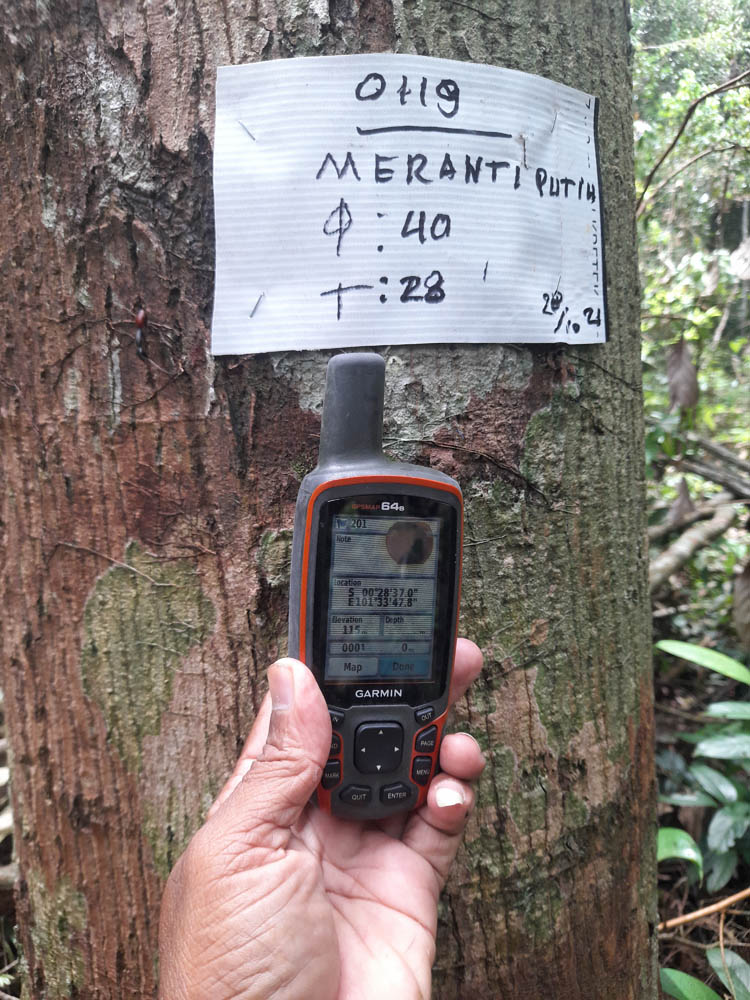 0119
MERANTI PUTIH
Φ : 40
T : 28
28/10 21
GPSMAP 64s
201
Note
Location
S 00°28'37.0"
E101°33'47.8"
Elevation Depth
115m
0001 0m
Map Done
GARMIN
IN OUT
PAGE
MARK MENU
QUIT ENTER